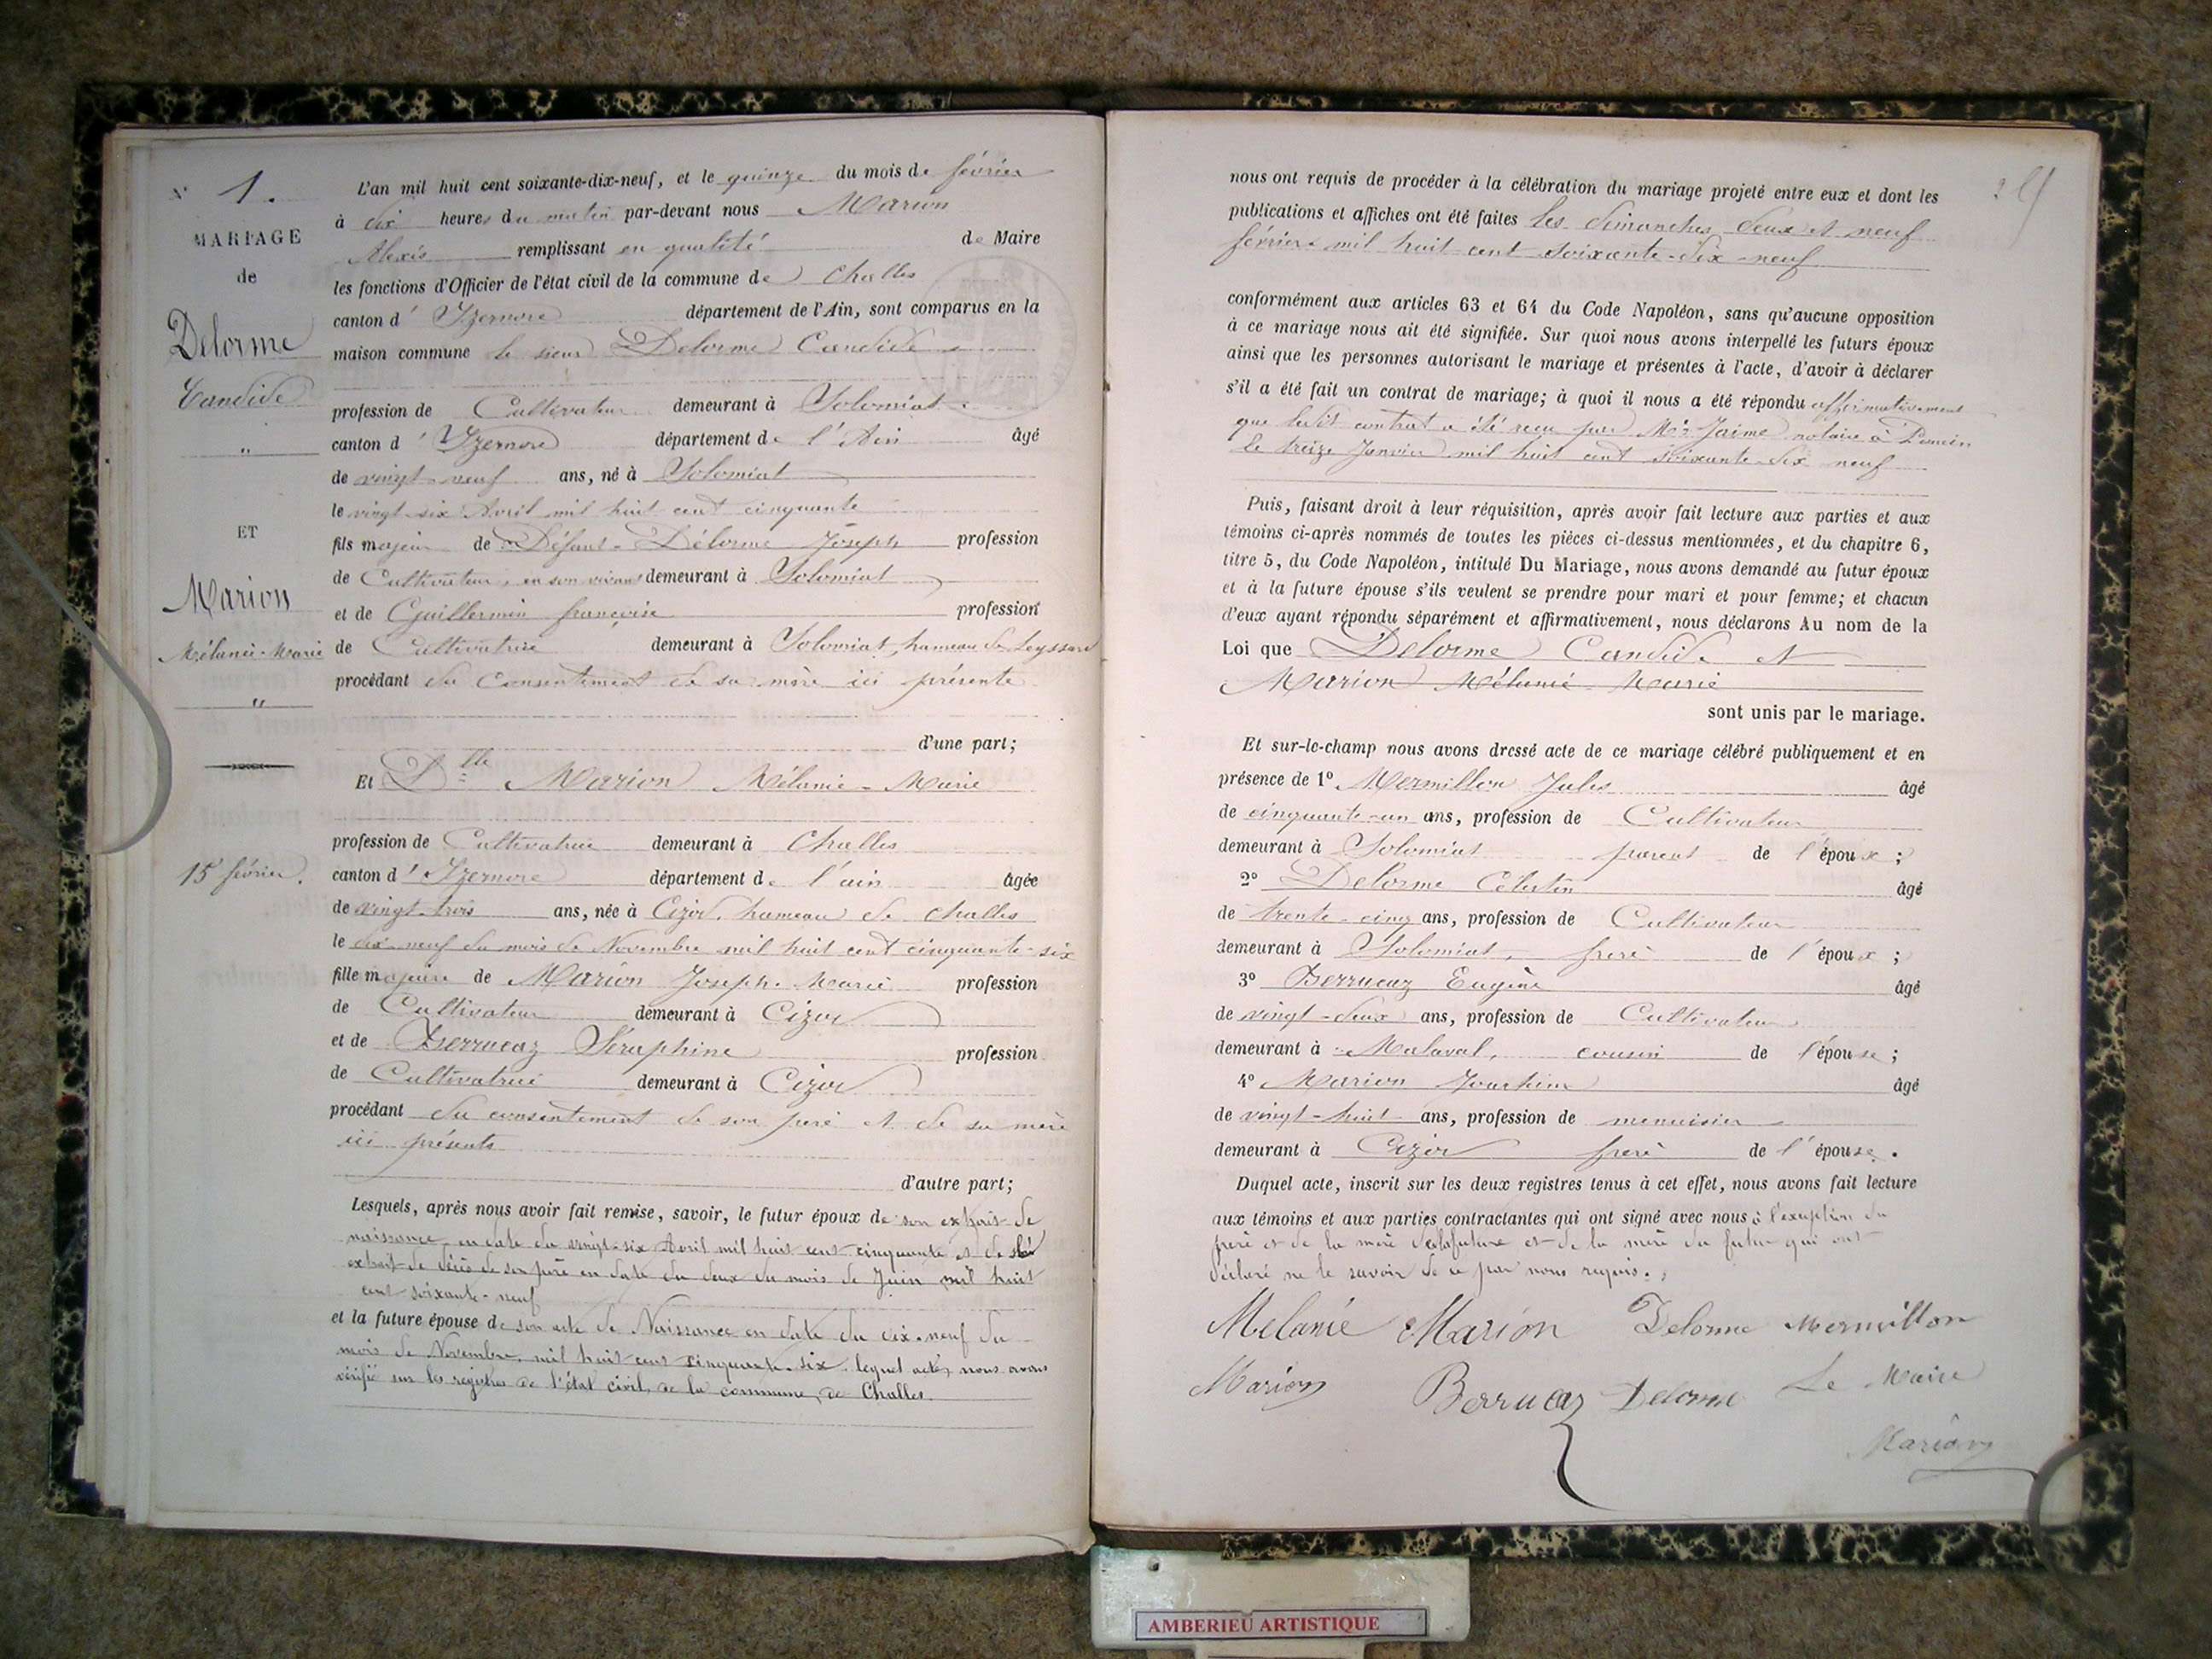 N° 1.
MARIAGE
de
Delorme
Candide
"
ET
Marion
Mélanie-Marie
"
15 février.
L'an mil huit cent soixante-dix-neuf, et le quinze du mois de février
à dix heures du matin par-devant nous Marion
Alexis remplissant en qualité de Maire
les fonctions d'Officier de l'état civil de la commune de Challes
canton d'Izernore département de l'Ain, sont comparus en la
maison commune le sieur Delorme Candide
profession de Cultivateur demeurant à Solomiat
canton d'Izernore département de l'Ain âgé
de vingt-neuf ans, né à Solomiat
le vingt-six Avril mil huit cent cinquante
fils majeur de Défunt Délorme Joseph profession
de Cultivateur, en son vivant demeurant à Solomiat
et de Guillermin françoise profession
de Cultivatrice demeurant à Solomiat, hameau de Leyssard
procédant du Consentement de sa mère ici présente
d'une part;
Et Dlle Marion Mélanie-Marie
profession de Cultivatrice demeurant à Challes
canton d'Izernore département de l'ain âgée
de vingt-trois ans, née à Cizod, hameau de Challes
le dix-neuf du mois de Novembre mil huit cent cinquante-six
fille majeure de Marion Joseph-Marie profession
de Cultivateur demeurant à Cizod
et de Berrucaz Séraphine profession
de Cultivatrice demeurant à Cizod
procédant du consentement de son père et de sa mère
ici présents
d'autre part;
Lesquels, après nous avoir fait remise, savoir, le futur époux de son extrait de
naissance en date du vingt-six Avril mil huit cent cinquante et de
extrait de décès de son père en date du deux du mois de Juin mil huit
cent soixante-neuf
et la future épouse de son acte de Naissance en date du dix-neuf du
mois de Novembre, mil huit cent cinquante-six lequel acte, nous avons
vérifié sur les registres de l'état civil, de la commune, de Challes.
nous ont requis de procéder à la célébration du mariage projeté entre eux et dont les
publications et affiches ont été faites les dimanches deux et neuf
février mil huit cent soixante-dix-neuf
conformément aux articles 63 et 64 du Code Napoléon, sans qu'aucune opposition
à ce mariage nous ait été signifiée. Sur quoi nous avons interpellé les futurs époux
ainsi que les personnes autorisant le mariage et présentes à l'acte, d'avoir à déclarer
s'il a été fait un contrat de mariage; à quoi il nous a été répondu affirmativement
que ledit contrat a été reçu par Me Jaime notaire à Poncin
le treize Janvier mil huit cent soixante-dix neuf
Puis, faisant droit à leur réquisition, après avoir fait lecture aux parties et aux
témoins ci-après nommés de toutes les pièces ci-dessus mentionnées, et du chapitre 6,
titre 5, du Code Napoléon, intitulé Du Mariage, nous avons demandé au futur époux
et à la future épouse s'ils veulent se prendre pour mari et pour femme; et chacun
d'eux ayant répondu séparément et affirmativement, nous déclarons Au nom de la
Loi que Delorme Candide et
Marion Mélanie-Marie
sont unis par le mariage.
Et sur-le-champ nous avons dressé acte de ce mariage célébré publiquement et en
présence de 1° Mermillon Jules âgé
de cinquante-un ans, profession de Cultivateur
demeurant à Solomiat parent de l'époux;
2° Delorme Célestin âgé
de trente-cinq ans, profession de Cultivateur
demeurant à Solomiat, frère de l'époux;
3° Berrucaz Eugène âgé
de vingt-deux ans, profession de Cultivateur
demeurant à Malaval, cousin de l'épouse;
4° Marion Joachim âgé
de vingt-huit ans, profession de menuisier
demeurant à Cizod frère de l'épouse.
Duquel acte, inscrit sur les deux registres tenus à cet effet, nous avons fait lecture
aux témoins et aux parties contractantes qui ont signé avec nous à l'exception du
père et de la mère de la future et de la mère du futur qui ont
déclaré ne le savoir de ce par nous requis.
Melanie Marion Delorme Mermillon
Marion Berrucaz Delorme Le Maire
Marion
AMBERIEU ARTISTIQUE